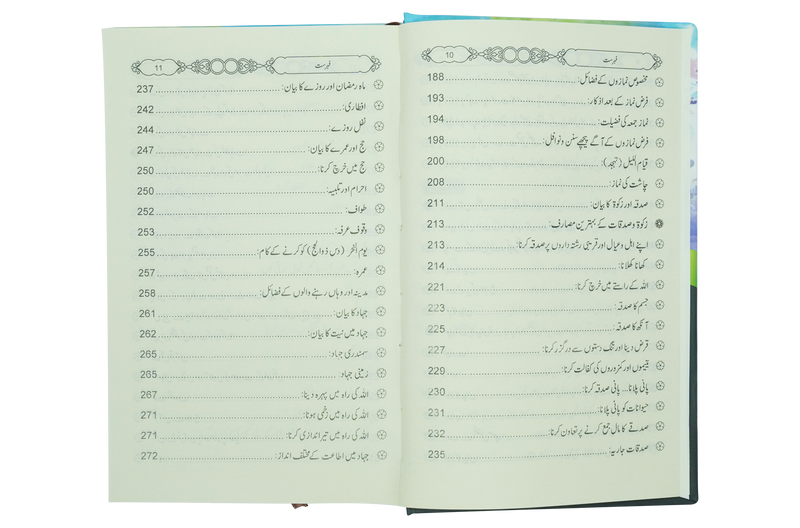 فہرست
10
مخصوص نمازوں کے فضائل: 188
فرض نماز کے بعد اذکار: 193
نماز جمعہ کی فضیلت: 194
فرض نمازوں کے آگے پیچھے سنن ونوافل: 198
قیام اللیل (تہجد): 200
چاشت کی نماز: 208
صدقہ اور زکوۃ کا بیان: 211
زکوۃ وصدقات کے بہترین مصارف: 213
اپنے اہل وعیال اور قریبی رشتہ داروں پر صدقہ کرنا: 213
کھانا کھلانا: 214
اللہ کے راستے میں خرچ کرنا: 221
جسم کا صدقہ: 223
آنکھ کا صدقہ: 225
قرض دینا اور تنگ دستوں سے درگزر کرنا: 227
یتیموں اور کمزوروں کی کفالت کرنا: 229
پانی پلانا... پانی صدقہ کرنا: 230
حیوانات کو پانی پلانا: 231
صدقے کا مال جمع کرنے پر تعاون کرنا: 232
صدقات جاریہ: 235
فہرست
11
ماہ رمضان اور روزے کا بیان: 237
افطاری: 242
نفل روزے: 244
حج اور عمرے کا بیان: 247
حج میں خرچ کرنا: 250
احرام اور تلبیہ: 250
طواف: 252
وقوف عرفہ: 253
یوم النحر (دس ذوالحج) کو کرنے کے کام: 255
عمرہ: 257
مدینہ اور وہاں رہنے والوں کے فضائل: 258
جہاد کا بیان: 261
جہاد میں نیت کا بیان: 262
سمندری جہاد: 265
زمینی جہاد: 265
اللہ کی راہ میں پہرہ دینا: 267
اللہ کی راہ میں زخمی ہونا: 271
اللہ کی راہ میں تیر اندازی کرنا: 271
جہاد میں اطاعت کے مختلف انداز: 272